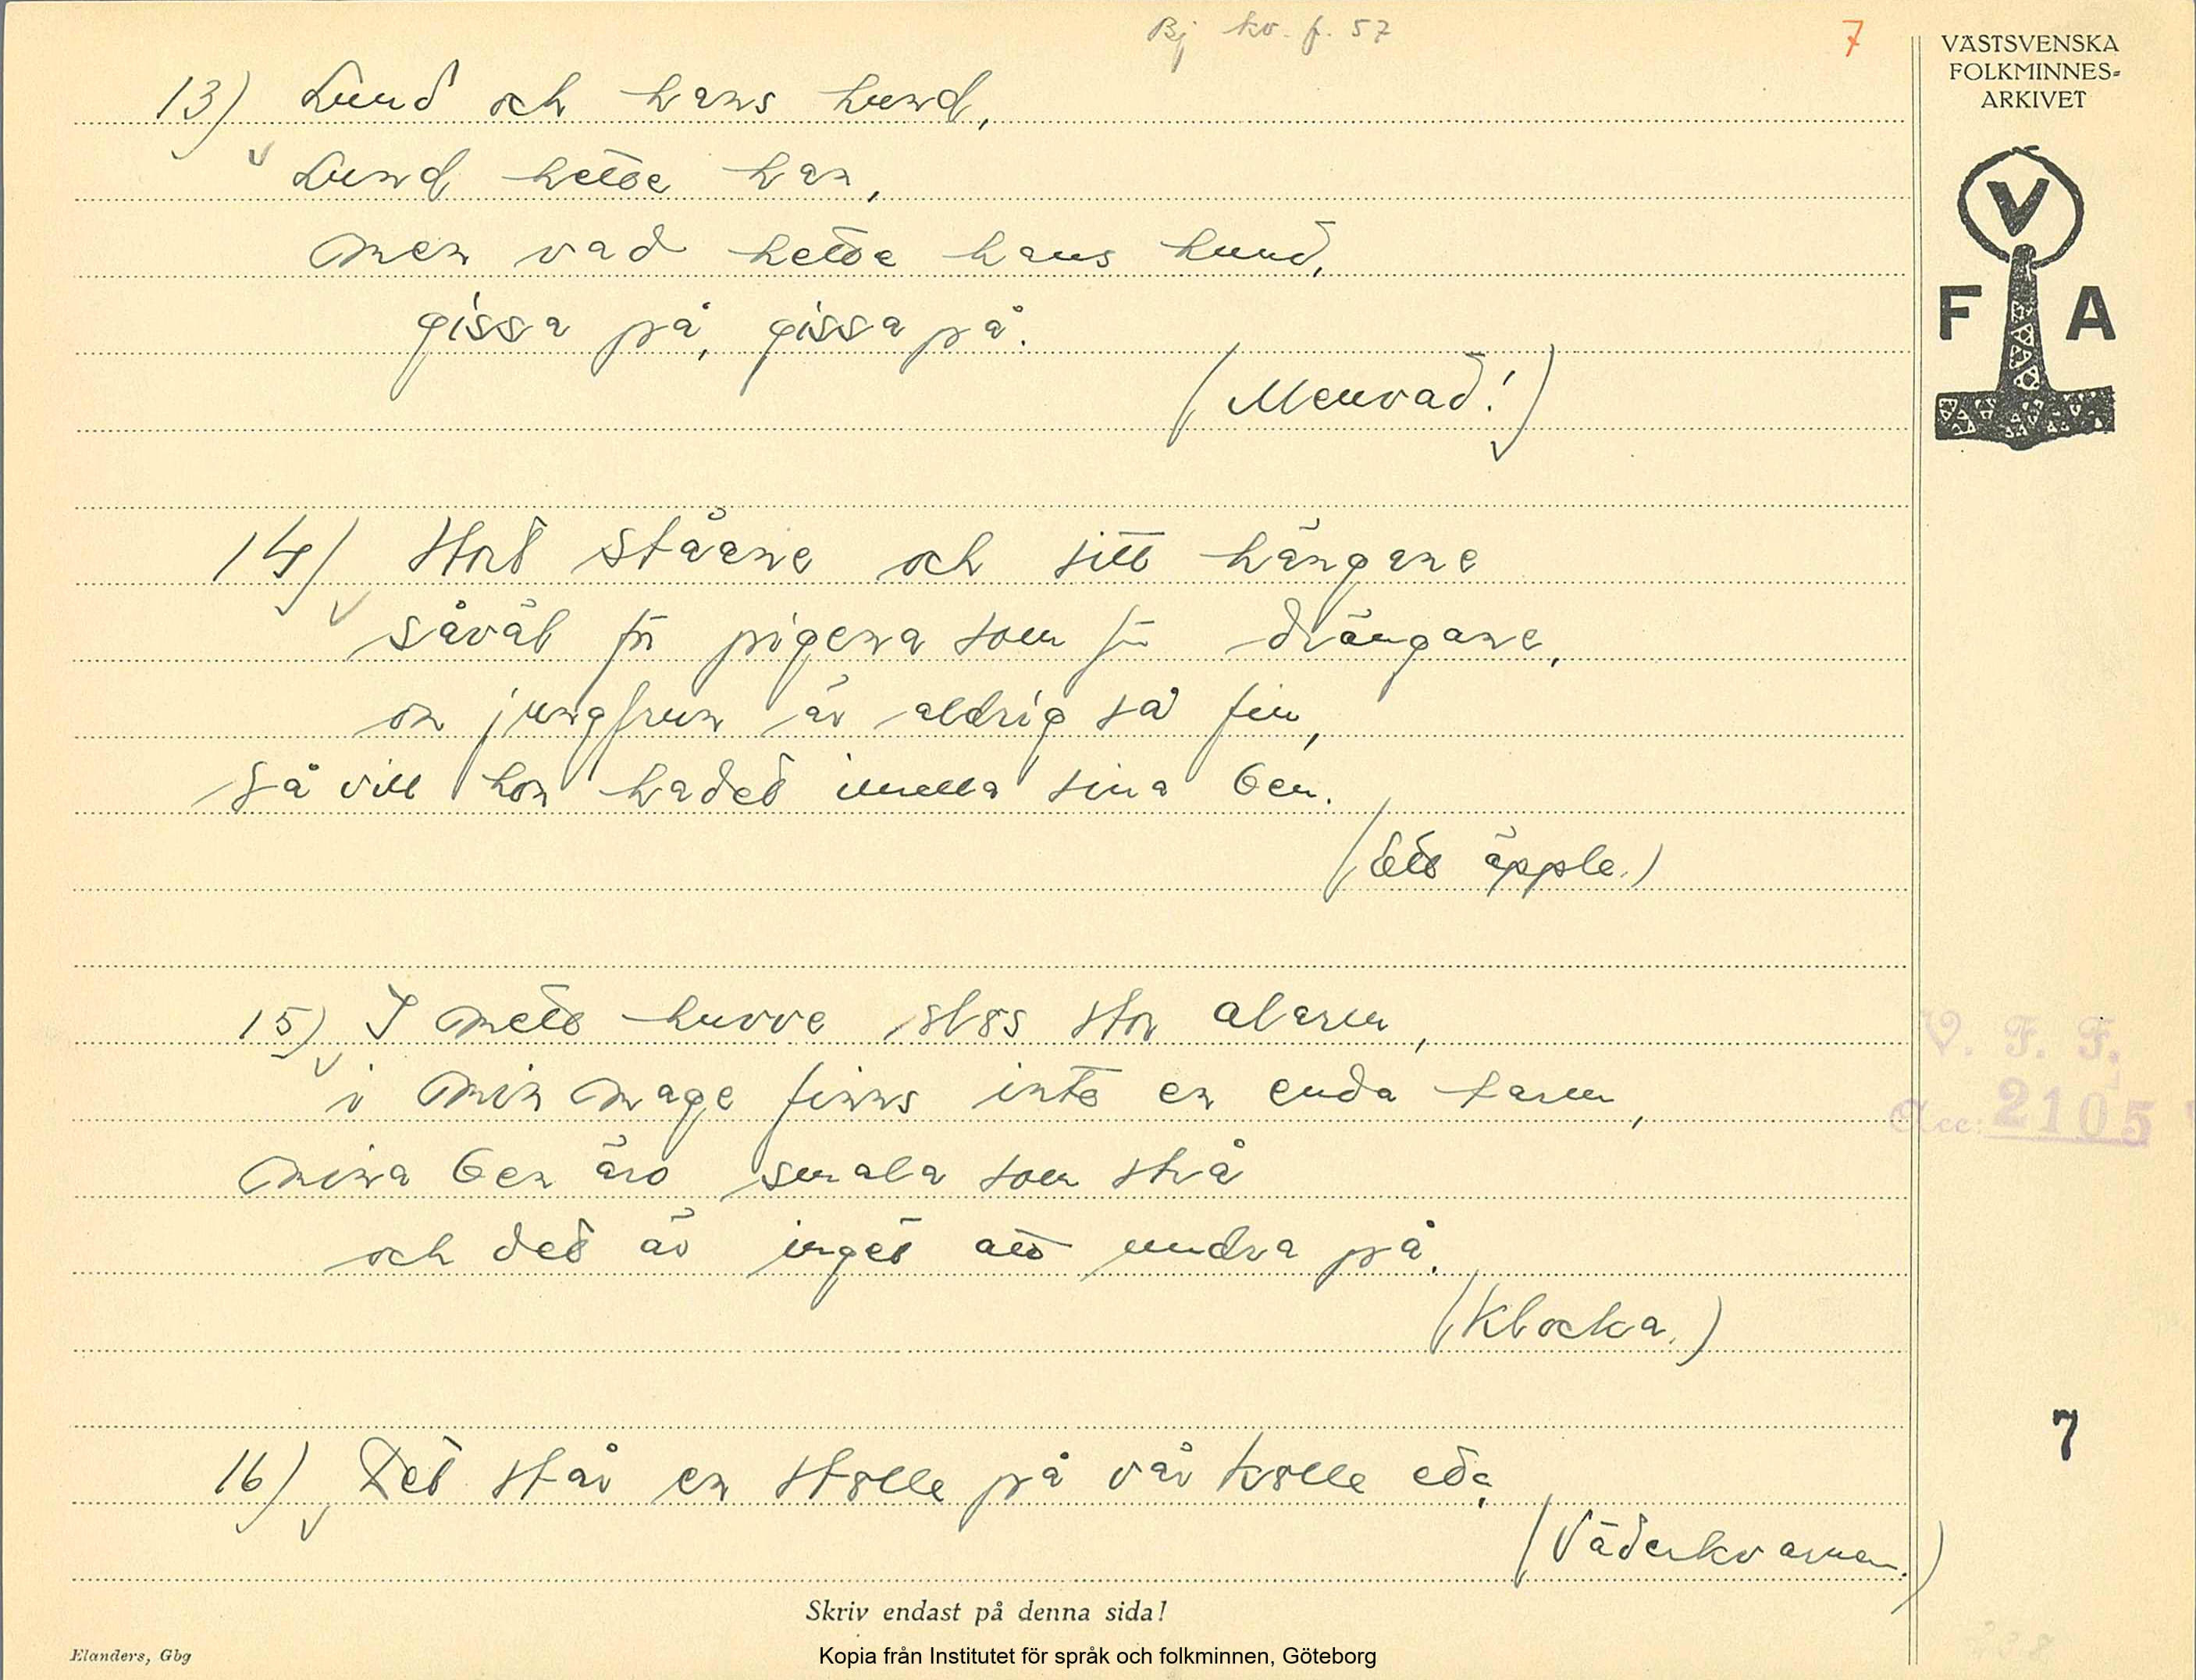 Bj kv. f. 57
7
VÄSTSVENSKA
FOLKMINNES-
ARKIVET
V
F A
13) Lund och hans hund,
Lund hette han,
men vad hette hans hund,
gissa på, gissa på.
(Menvad!)
14) Stort ståane och sitt hängane
såväl för pigena som för drängane,
om jungfrun är aldrig så fin,
så vill hon hadet imella sina ben.
(Ett äpple.)
15) I mett huvve slås stor alarm,
i min mage finns inte en enda tarm,
mina ben äro smala som strå
och det är inget att undra på.
(Klocka.)
V. F. F.
Acc: 2105
7
16) Det står en stolle på vår kolle
(Väderkvarnen.)
Skriv endast på denna sida!
Elanders, Gbg
Kopia från Institutet för språk och folkminnen, Göteborg